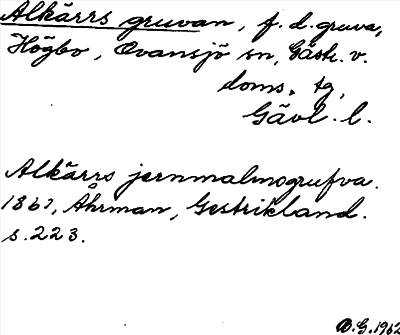 Alkärrs gruvan, f. d. gruva,
Högbo, Ovansjö sn, Gästr. v.
doms. tg,
Gävl. l.
Alkärrs jernmalmsgrufva.
1861, Åhrman, Gestrikland.
s. 223.
O.G. 1962